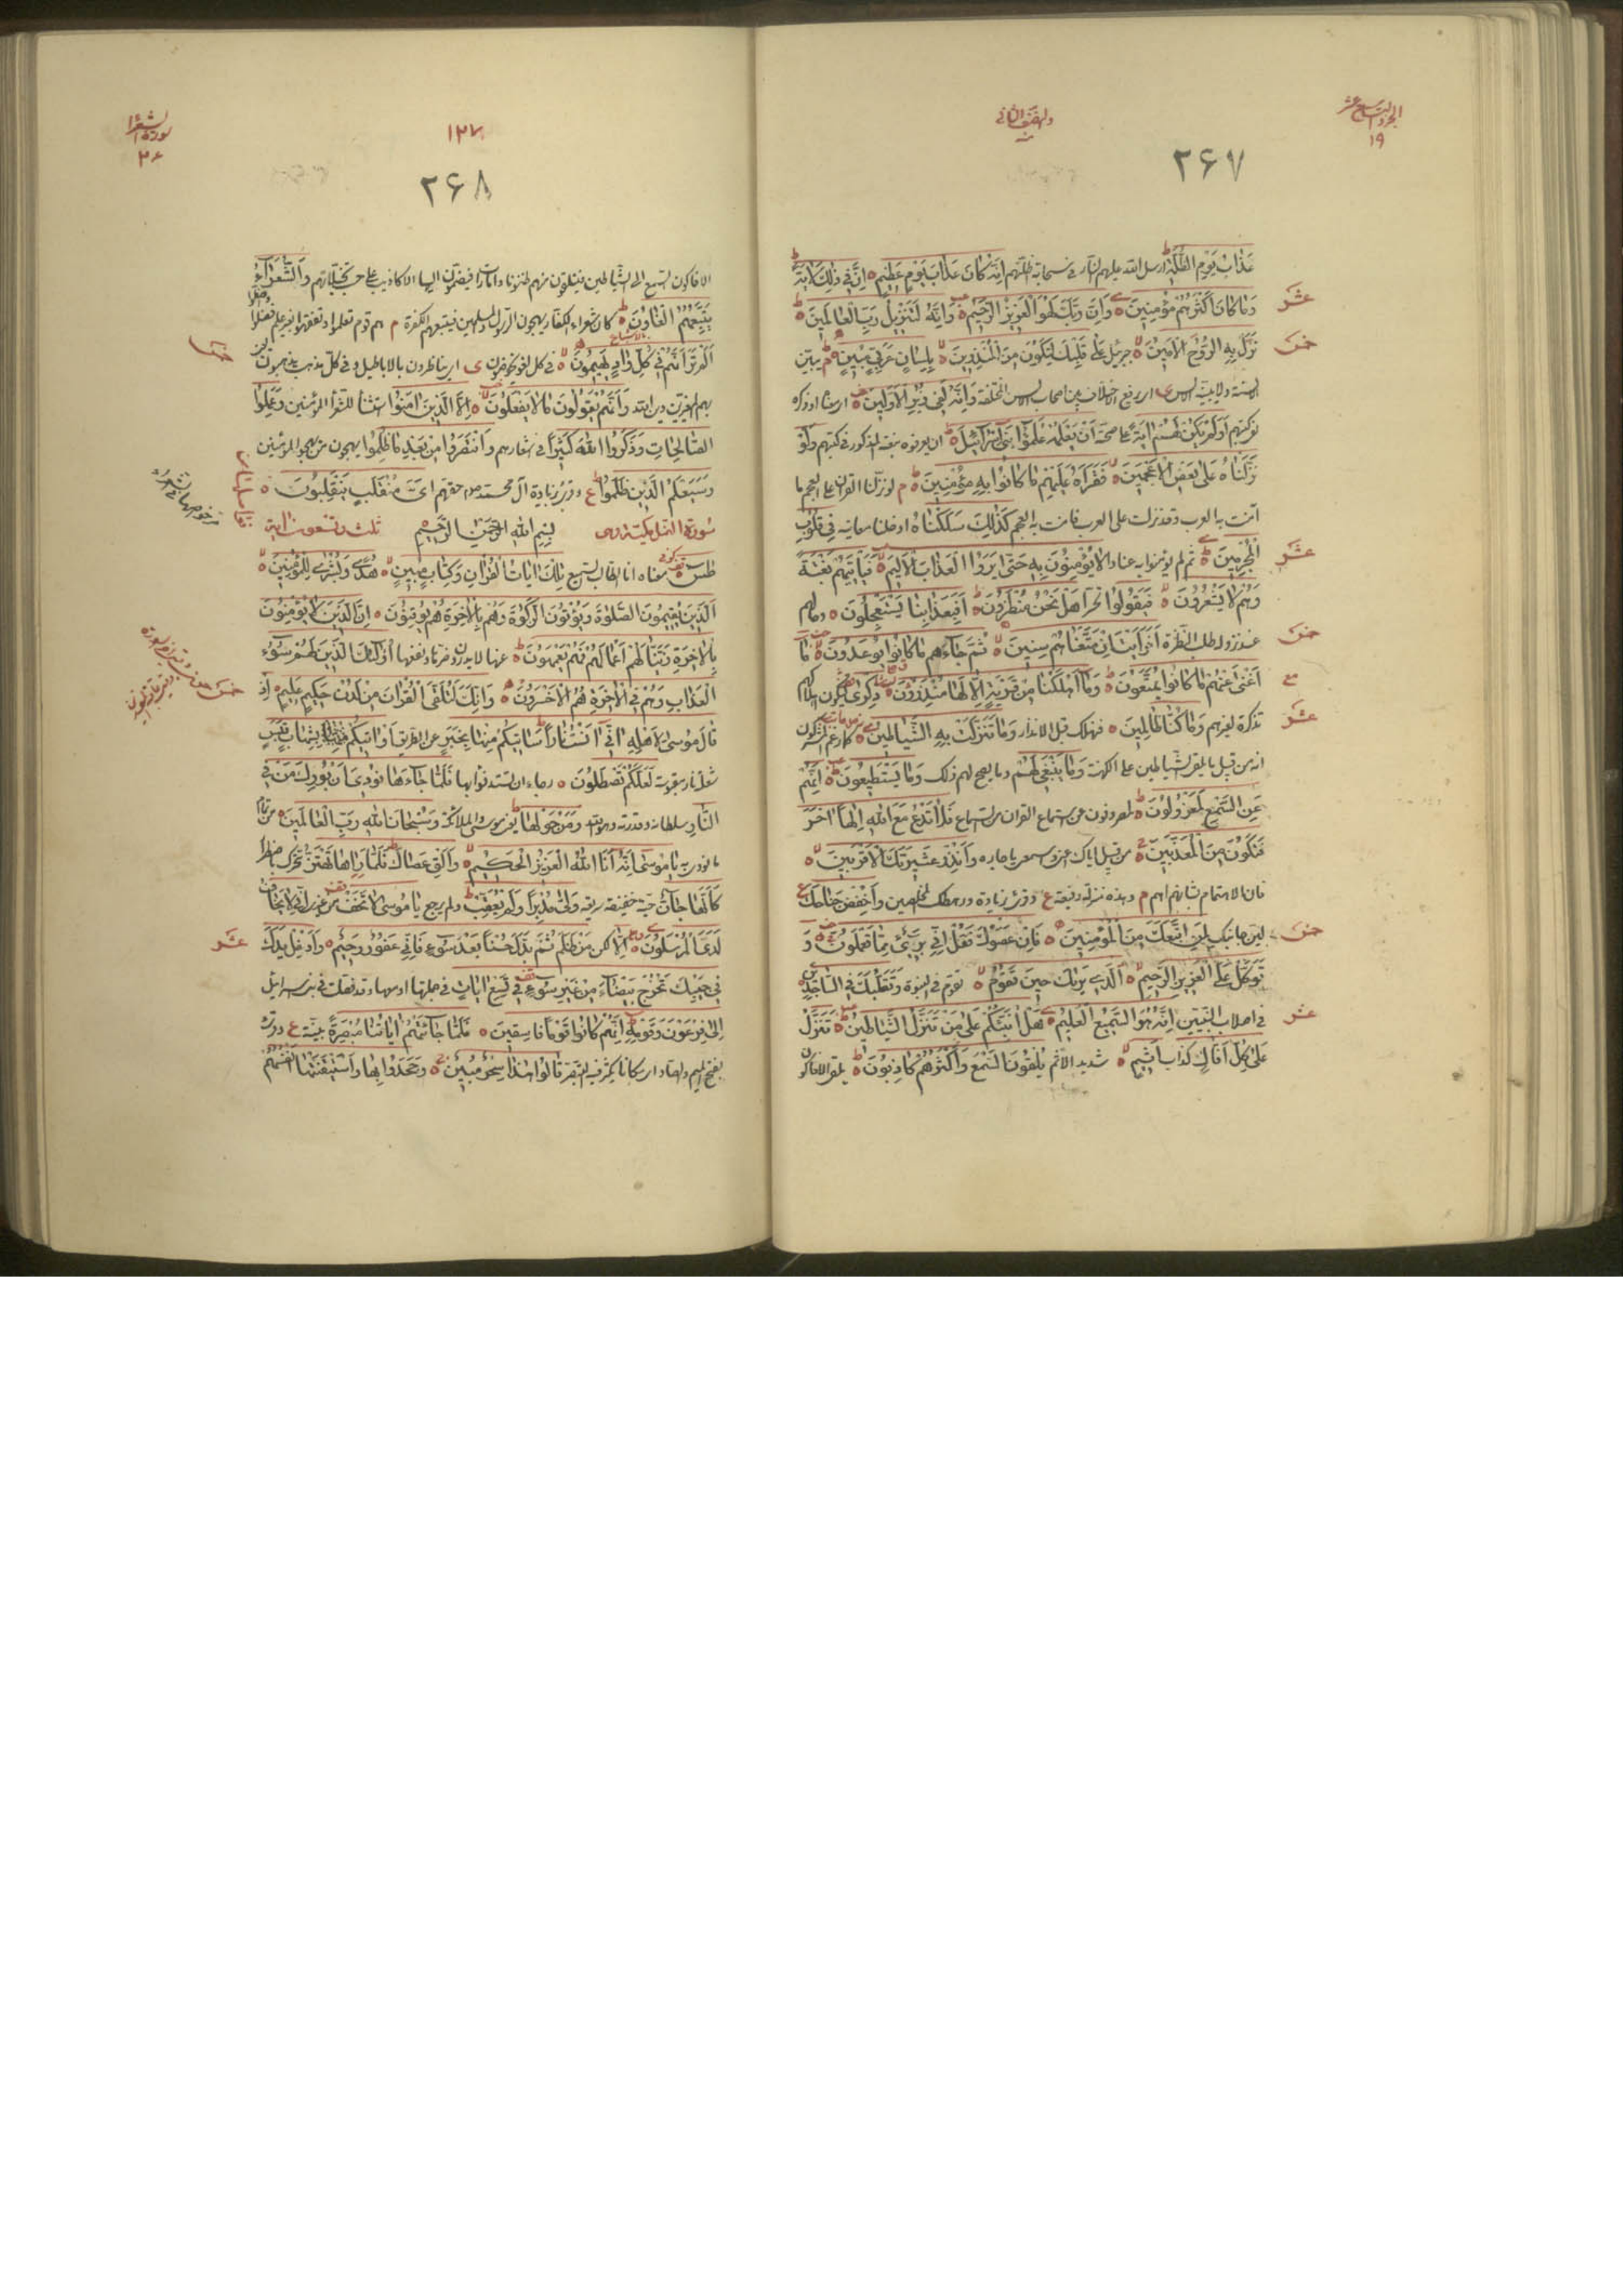 الجزء التاسع عشر
١٩
والنصف الثانی
٢۶٧
عَذَابُ يَوْمِ الظُّلَّةِ ارسل الله عليهم النار من سحابة ظلتهم اِنَّهُ كَانَ عَذَابَ يَوْمٍ عَظِيمٍ اِنَّ فِي ذٰلِكَ لَاٰيَةً
عشر
وَمَا كَانَ اَكْثَرُهُمْ مُؤْمِنِينَ وَاِنَّ رَبَّكَ لَهُوَ الْعَزِيزُ الرَّحِيمُ وَاِنَّهُ لَتَنْزِيلُ رَبِّ الْعَالَمِينَ
خمس
نَزَلَ بِهِ الرُّوحُ الْاَمِينُ جبرئيل عَلٰى قَلْبِكَ لِتَكُونَ مِنَ الْمُنْذِرِينَ بِلِسَانٍ عَرَبِيٍّ مُبِينٍ م يبين
الالسنة ولا يبينه الالسن وَاِنَّهُ لَفِي زُبُرِ الْاَوَّلِينَ معناه او ذكره
فی كتبهم اَوَلَمْ يَكُنْ لَهُمْ اٰيَةً على صحته اَنْ يَعْلَمَهُ عُلَمٰٓؤُا بَنِي اِسْرَائِيلَ ان يعرفوه بنعته المذكور فی كتبهم وَلَوْ
نَزَّلْنَاهُ عَلٰى بَعْضِ الْاَعْجَمِينَ فَقَرَاَهُ عَلَيْهِمْ مَا كَانُوا بِهِ مُؤْمِنِينَ م لو نزلنا القران على العجم ما
آمنت به العرب وقد نزلت على العرب فامنت به العجم كَذٰلِكَ سَلَكْنَاهُ ادخلنا معانيه فِي قُلُوبِ
عشر
الْمُجْرِمِينَ ثم لم يؤمنوا به عنادا لَا يُؤْمِنُونَ بِهِ حَتّٰى يَرَوُا الْعَذَابَ الْاَلِيمَ فَيَاْتِيَهُمْ بَغْتَةً
وَهُمْ لَا يَشْعُرُونَ فَيَقُولُوا تحسرا هَلْ نَحْنُ مُنْظَرُونَ اَفَبِعَذَابِنَا يَسْتَعْجِلُونَ وحالهم
خمس
عند نزوله طلب النظرة اَفَرَاَيْتَ اِنْ مَتَّعْنَاهُمْ سِنِينَ ثُمَّ جَاءَهُمْ مَا كَانُوا يُوعَدُونَ مَا
اَغْنٰى عَنْهُمْ مَا كَانُوا يُمَتَّعُونَ وَمَا اَهْلَكْنَا مِنْ قَرْيَةٍ اِلَّا لَهَا مُنْذِرُونَ ذِكْرٰى ليكون اهلاكهم
عشر
تذكرة لغيرهم وَمَا كُنَّا ظَالِمِينَ فنهلك قبل الانذار وَمَا تَنَزَّلَتْ بِهِ الشَّيَاطِينُ كما زعم المشركون
انه من قبيل ما يلقى الشياطين على الكهنة وَمَا يَنْبَغِي لَهُمْ وما يصح لهم ذلك وَمَا يَسْتَطِيعُونَ اِنَّهُمْ
عَنِ السَّمْعِ لَمَعْزُولُونَ لمصروفون عن استماع القران من السماء فَلَا تَدْعُ مَعَ اللهِ اِلٰهًا اٰخَرَ
فَتَكُونَ مِنَ الْمُعَذَّبِينَ من قبيل اياك اعني واسمعي يا جاره وَاَنْذِرْ عَشِيرَتَكَ الْاَقْرَبِينَ
فان الاهتمام بشانهم اهم م وهذه منزلة رفيعة وَاخْفِضْ جَنَاحَكَ
خمس
لين جانبك لِمَنِ اتَّبَعَكَ مِنَ الْمُؤْمِنِينَ فَاِنْ عَصَوْكَ فَقُلْ اِنِّي بَرِيءٌ مِمَّا تَعْمَلُونَ وَ
تَوَكَّلْ عَلَى الْعَزِيزِ الرَّحِيمِ اَلَّذِي يَرٰيكَ حِينَ تَقُومُ تقوم فی النبوة وَتَقَلُّبَكَ فِي السَّاجِدِينَ
عشر
فی اصلاب النبيين اِنَّهُ هُوَ السَّمِيعُ الْعَلِيمُ هَلْ اُنَبِّئُكُمْ عَلٰى مَنْ تَنَزَّلُ الشَّيَاطِينُ تَنَزَّلُ
عَلٰى كُلِّ اَفَّاكٍ كذاب اَثِيمٍ شديد الاثم يُلْقُونَ السَّمْعَ وَاَكْثَرُهُمْ كَاذِبُونَ يلقى الافاكون
سورة الشعرا
٢۶
١٢٧
٢۶٨
الافاكون السمع الى الشياطين فيتلقون منهم ظنونا وامارات فيضمون اليها الاكاذيب على حسب تخيلاتهم وَالشُّعَرَاءُ
يَتَّبِعُهُمُ الْغَاوُنَ كان شعراء الكفار يهجون الرسول والمسلمين فيتبعهم الكفرة م هم قوم تعلموا وتفقهوا بغير علم فضلوا واضلوا
خمس
اَلَمْ تَرَ اَنَّهُمْ فِي كُلِّ وَادٍ يَهِيمُونَ فی كل لغو يخوضون ی يناظرون بالاباطيل وفی كل مذهب يذهبون
وَاَنَّهُمْ يَقُولُونَ مَا لَا يَفْعَلُونَ اِلَّا الَّذِينَ اٰمَنُوا استثنا للشعرا المؤمنين وَعَمِلُوا
الصَّالِحَاتِ وَذَكَرُوا اللهَ كَثِيرًا فی اشعارهم وَانْتَصَرُوا مِنْ بَعْدِ مَا ظُلِمُوا يهجون من يهجو المؤمنين
وَسَيَعْلَمُ الَّذِينَ ظَلَمُوا ع وقرئ بزيادة آل محمد حقهم اَيَّ مُنْقَلَبٍ يَنْقَلِبُونَ
سورة النمل مكية بِسْمِ اللهِ الرَّحْمٰنِ الرَّحِيمِ ثلث وتسعون اية
طٰس معناه انا الطالب السميع تِلْكَ اٰيَاتُ الْقُرْاٰنِ وَكِتَابٍ مُبِينٍ هُدًى وَبُشْرٰى لِلْمُؤْمِنِينَ
اَلَّذِينَ يُقِيمُونَ الصَّلٰوةَ وَيُؤْتُونَ الزَّكٰوةَ وَهُمْ بِالْاٰخِرَةِ هُمْ يُوقِنُونَ اِنَّ الَّذِينَ لَا يُؤْمِنُونَ
بِالْاٰخِرَةِ زَيَّنَّا لَهُمْ اَعْمَالَهُمْ فَهُمْ يَعْمَهُونَ عنها لا يدرون ضرها ونفعها اُولٰئِكَ الَّذِينَ لَهُمْ سُوءُ
خمس
الْعَذَابِ وَهُمْ فِي الْاٰخِرَةِ هُمُ الْاَخْسَرُونَ وَاِنَّكَ لَتُلَقَّى الْقُرْاٰنَ مِنْ لَدُنْ حَكِيمٍ عَلِيمٍ اِذْ
قَالَ مُوسٰى لِاَهْلِهِ اِنِّي اٰنَسْتُ نَارًا سَاٰتِيكُمْ مِنْهَا بِخَبَرٍ عن الطريق اَوْ اٰتِيكُمْ بِشِهَابٍ قَبَسٍ
شعلة نار مقبوسة لَعَلَّكُمْ تَصْطَلُونَ رجاء ان تستدفئوا بها فَلَمَّا جَاءَهَا نُودِيَ اَنْ بُورِكَ مَنْ فِي
النَّارِ سلطانه وقدرته وَمَنْ حَوْلَهَا يعنی موسى والملائكة وَسُبْحَانَ اللهِ رَبِّ الْعَالَمِينَ من تمام
ما نودي به يَا مُوسٰى اِنَّهُ اَنَا اللهُ الْعَزِيزُ الْحَكِيمُ وَاَلْقِ عَصَاكَ فَلَمَّا رَاٰهَا تَهْتَزُّ تتحرك باضطراب
كَاَنَّهَا جَانٌّ حية خفيفة سريعة وَلّٰى مُدْبِرًا وَلَمْ يُعَقِّبْ ولم يرجع يَا مُوسٰى لَا تَخَفْ من غيري اِنِّي لَا يَخَافُ
عشر
لَدَيَّ الْمُرْسَلُونَ اِلَّا لكن مَنْ ظَلَمَ ثُمَّ بَدَّلَ حُسْنًا بَعْدَ سُوءٍ فَاِنِّي غَفُورٌ رَحِيمٌ وَاَدْخِلْ يَدَكَ
فِي جَيْبِكَ تَخْرُجْ بَيْضَاءَ مِنْ غَيْرِ سُوءٍ فِي تِسْعِ اٰيَاتٍ فی جملتها او معها وقد فصلت فی بنی اسرائيل
اِلٰى فِرْعَوْنَ وَقَوْمِهِ اِنَّهُمْ كَانُوا قَوْمًا فَاسِقِينَ فَلَمَّا جَاءَتْهُمْ اٰيَاتُنَا مُبْصِرَةً بينة ع وقرئ
بفتح الميم والصاد ای مكانا يكثر فيه التبصر قَالُوا هٰذَا سِحْرٌ مُبِينٌ وَجَحَدُوا بِهَا وَاسْتَيْقَنَتْهَا اَنْفُسُهُمْ